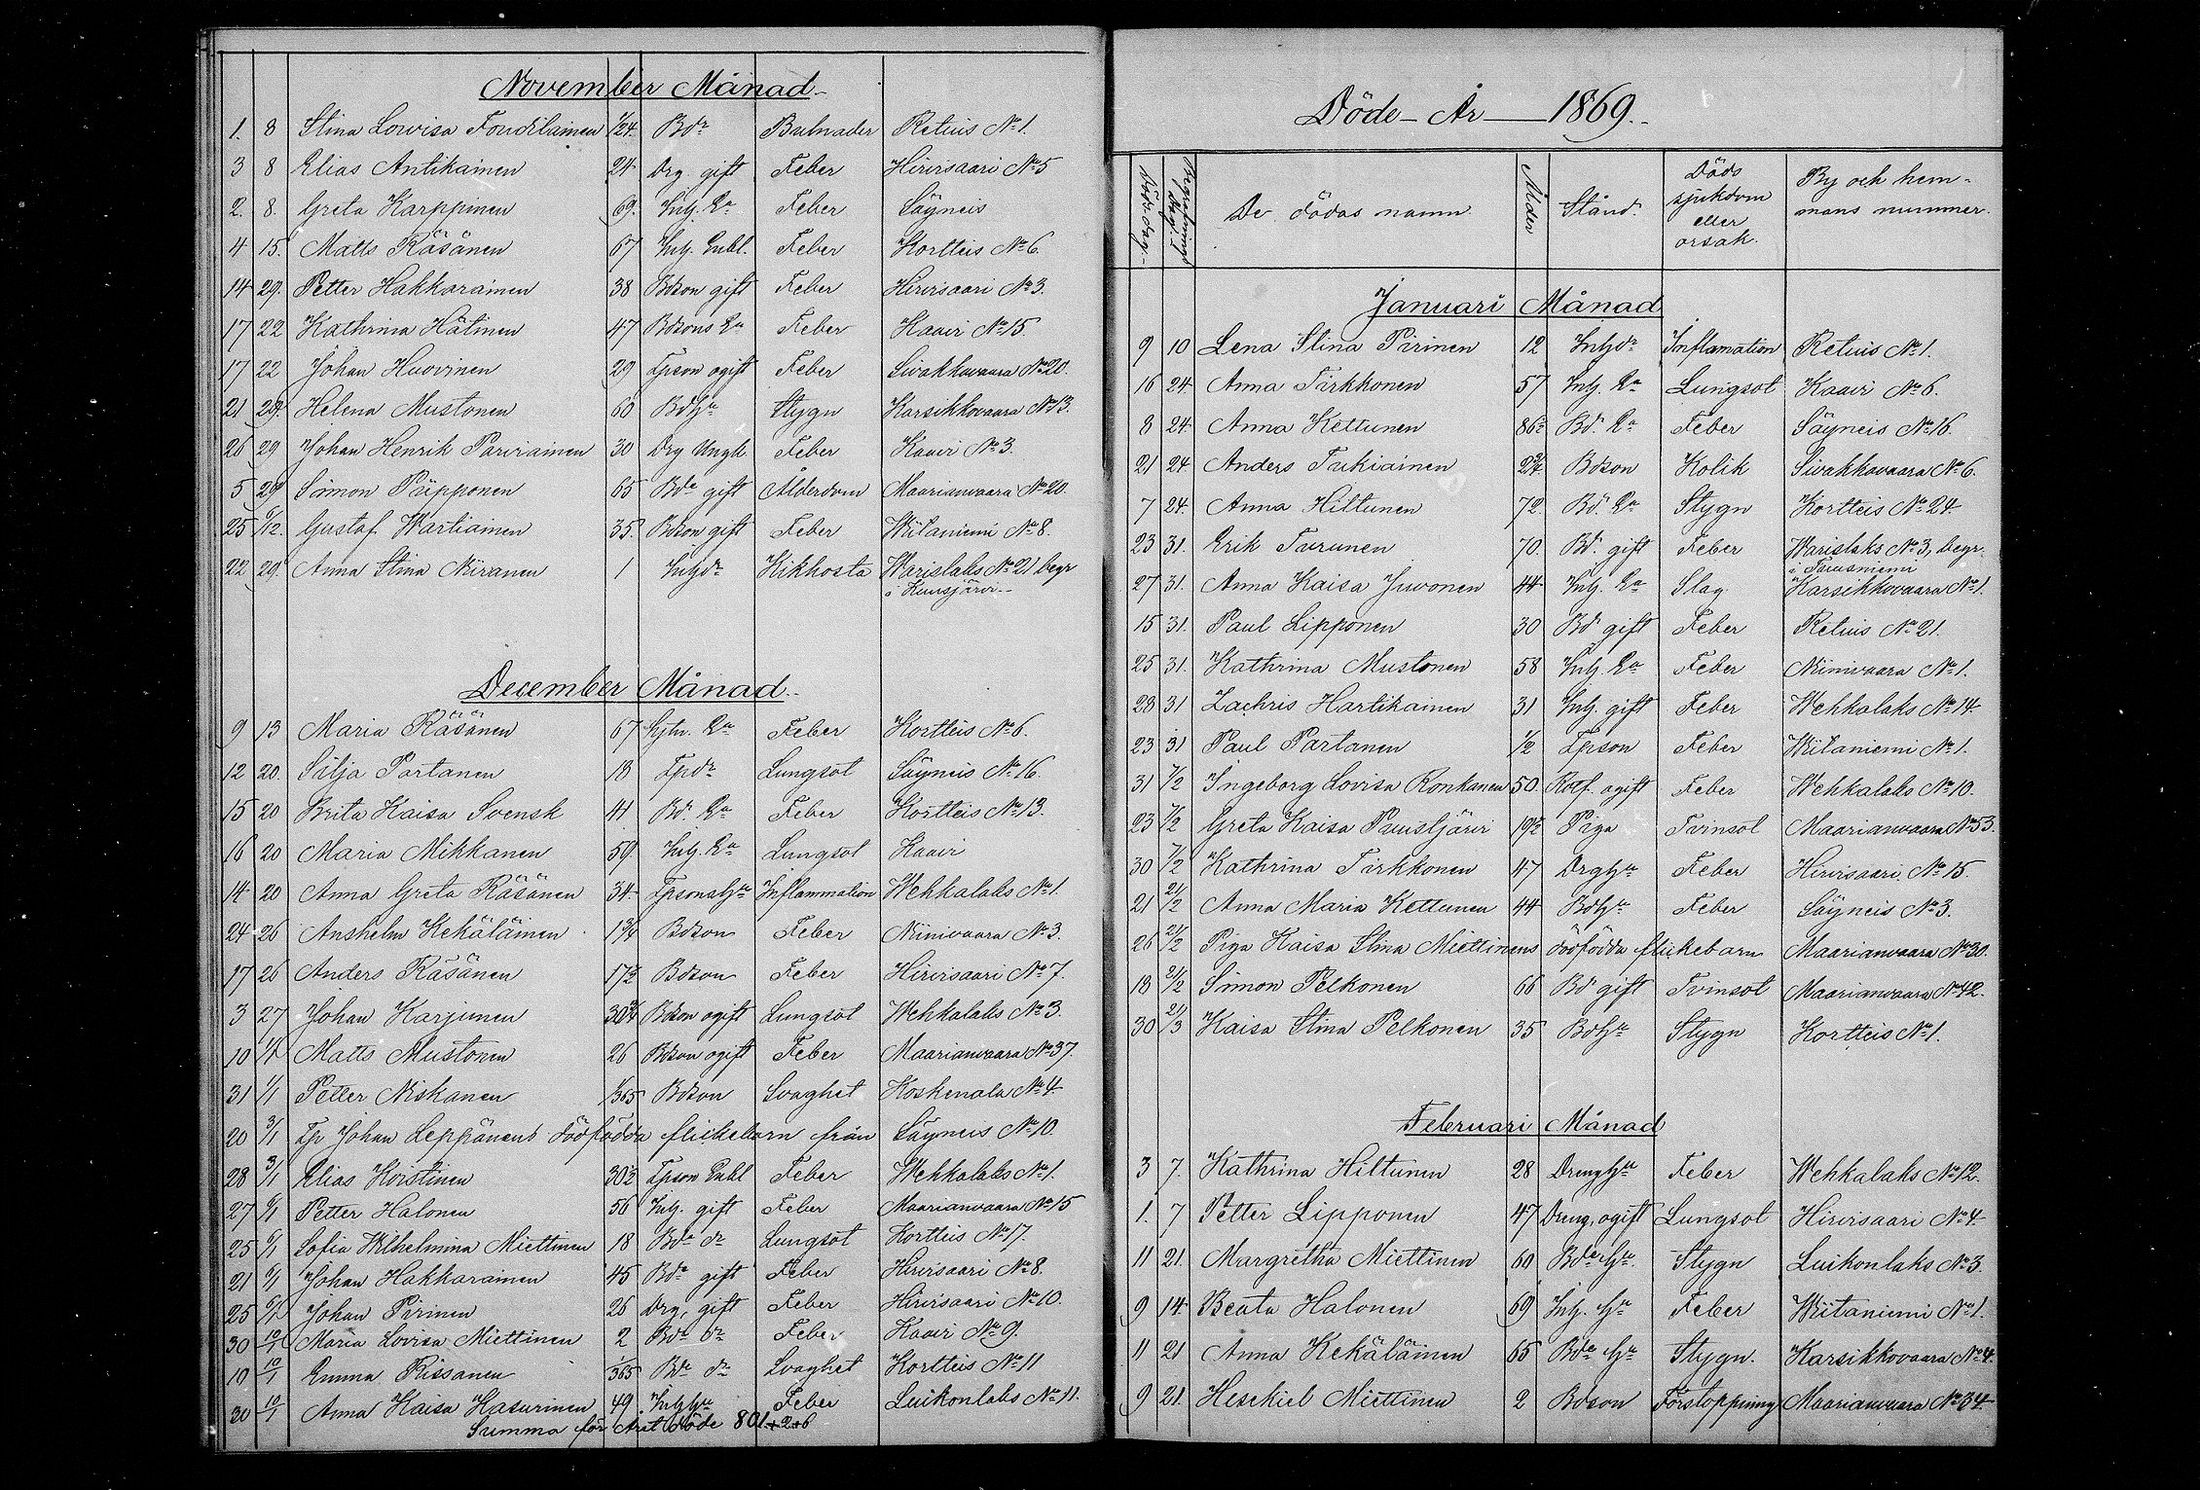 November Månad
1. 8 Stina Lovisa Tondilainen 1/24 Bdr Bulnader Retuis No 1.
3 8 Elias Antikainen 24 Drg. gift Feber Hirvisaari No 5
2. 8. Greta Karppinen 69. Inh. Ea Feber Säyneis
4 15. Matts Räsänen 67 Inh. Enkl. Feber Kortteis No 6.
14 29. Petter Hakkarainen 38 Bdson gift Feber Hirvisaari No 3.
17 22 Kathrina Hätinen 47 Bdsons Ea Feber Kaavi No 15
17 22 Johan Huovinen 29 Tpson ogift Feber Sivakkovaara No 20.
21 29. Helena Mustonen 60 BdHu Stygn Karsikkovaara No 13.
26 29 Johan Henrik Parviainen 30 Drg Ungk. Feber Kaavi No 3.
5 29 Simon Piipponen 65 Bde gift Ålderdom Maarianvaara No 20.
25 6/12. Gustaf Wartiainen 35. Bdson gift Feber Wiitaniemi No 8.
22 29. Anna Stina Niiranen 1 Inhdr Kikhosta Warislaks No 21 begr
i Kuusjärvi
December Månad
9 13 Maria Räsänen 67 Ea Feber Kortteis No 6.
12 20. Silja Partanen 18 Tpdr Lungsot Säyneis No 16.
15 20 Brita Kaisa Svensk 41 Bd. Ea Feber Kortteis No 13.
16 20 Maria Mikkanen 59. Inh. Ea Lungsot Kaavi
14 20 Anna Greta Räsänen 34 TpsonsHu Inflammation Wehkalaks No 1.
24 26 Anshelm Kekäläinen 1 3/4 Bdson Feber Niinivaara No 3.
17 26 Anders Räsänen 17 1/2 Bdson Feber Hirvisaari No 7.
3 27 Johan Karjunen 30 3/4 Bdson ogift Lungsot Wehkalaks No 3.
10 1/1 Matts Mustonen 26 Bdson ogift Feber Maarianvaara No 37.
31 1/1 Petter Niskanen 1/365 Bdson Svaghet Koskenala No 4
20 3/1 Tp Johan Leppänens dödfödda flickebarn från Säyneis No 10.
28 3/1 Elias Koistinen 30 1/2 Tpson Enkl Feber Wehkalaks No 1.
27 6/1 Petter Halonen 56 Inh. gift Feber Maarianvaara No 15
25 6/1 Sofia Wilhelmina Miettinen 18 Bde dr Lungsot Kortteis No 17.
21 6/1 Johan Hakkarainen 45 Bde gift Feber Hirvisaari No 8.
25 6/1 Johan Pirinen 26 Drg. gift Feber Hirvisaari No 10.
30 10/1 Maria Lovisa Miettinen 2 Bde dr Feber Kaavi No 9.
10 10/1 Emma Rissanen 1/365 Bde dr Svaghet Kortteis No 11
30 10/1 Anna Kaisa Kasurinen 49 InhHu Feber Luikonlaks No 11.
Summa för Året Döde 801+2+6
Döde År 1869.
Döds dag Begrafnings dag De dödas namn. Ålder Stånd. Döds sjukdom eller orsak. By och hemmans nummer.
Januari Månad
9 10 Lena Stina Pirinen 12 Inhdr Inflamation Retuis No 1.
16 24 Anna Tirkkonen 57 Inh. Ea Lungsot Kaavi No 6.
8 24. Anna Kettunen 86 1/2 Bd. Ea Feber Säyneis No 16.
21 24. Anders Tukiainen 2 3/4 Bdson Kolik Sivakkovaara No 6.
7 24. Anna Hiltunen 72. Bd. Ea Stygn Kortteis No 24.
23 31. Erik Turunen 70. Bd. gift Feber Warislaks No 3, begr.
27 31. Anna Kaisa Juvonen 44 Inh. Ea Slag Karsikkovaara No 1.
15 31. Paul Lipponen 30 Bd gift Feber Retuis No 21.
25 31. Kathrina Mustonen 58 Inh. Ea Feber Niinivaara No 1.
28 31 Zachris Hartikainen 31 Inh. gift Feber Wehkalaks No 14.
23 31 Paul Partanen 1/2 Tpson Feber Wiitaniemi No 1.
31 7/2 Ingeborg Lovisa Ronkanen 50 Rotf. ogift Feber Wehkalaks No 10.
23 7/2 Greta Kaisa Paustjärvi 19 1/2 Piga Tvinsot Maarianvaara No 53.
30 7/2 Kathrina Tirkkonen 47 DrgHu Feber Hirvisaari No 15.
21 21/2 Anna Maria Kettunen 44 BdHu Feber Säyneis No 3.
26 21/2 Piga Kaisa Stina Miettinens dödfödda flickebarn Maarianvaara No 30.
18 21/2 Simon Pelkonen 66 Bd gift Tvinsot Maarianvaara No 42.
30 21/3 Kaisa Stina Pelkonen 35 BdHu Stygn Kortteis No 1.
Februari Månad
3 7. Kathrina Hiltunen 28 DrengHu Feber Wehkalaks No 12.
1. 7 Petter Lipponen 47 Dreng, ogift Lungsot Hirvisaari No 4
11 21. Margretha Miettinen 60 Bde Hu. Stygn Luikonlaks No 3.
9 14. Beata Halonen 69 Inh. Hu Feber Wiitaniemi No 1.
11 21 Anna Kekäläinen 65 Bde Hu Stygn. Karsikkovaara No 4.
9 21. Heschiel Miettinen 2 Bdson Förstoppning Maarianvaara No 34